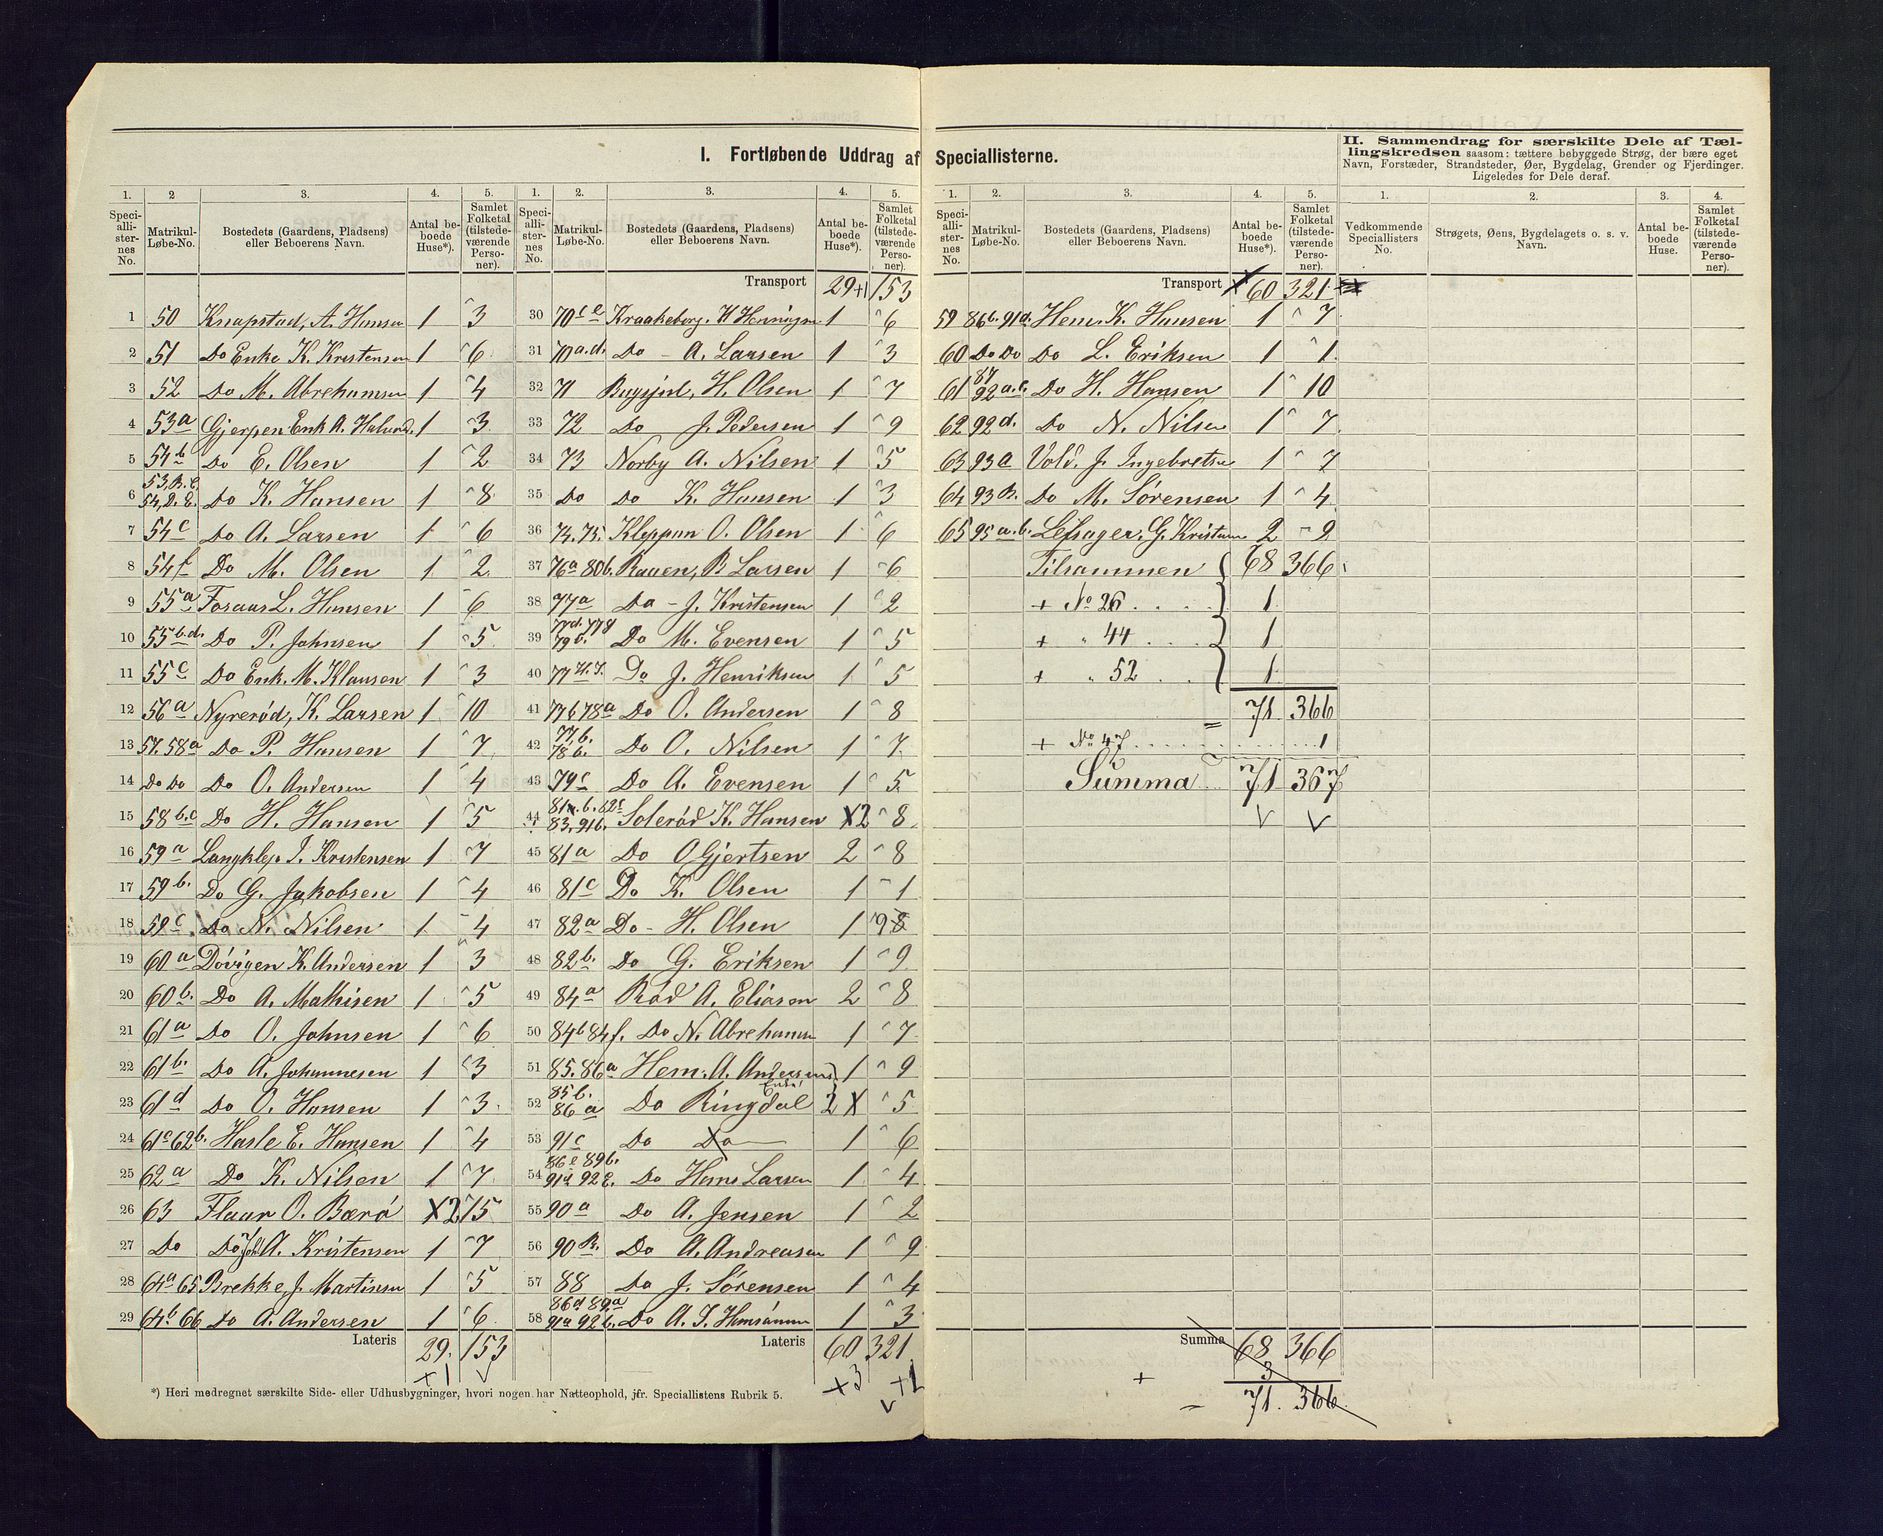 I. Fortløbende Uddrag af Speciallisterne.
II. Sammendrag for særskilte Dele af Tæl-
lingskredsen saasom: tættere bebyggede Strøg, der bære eget
Navn, Forstæder, Strandsteder, Øer, Bygdelag, Grender og Fjerdinger.
Ligeledes for Dele deraf.
1. 2 3. 4. 5. 1. 2. 3. 4. 5.
Speciallisternes No. Matrikul-Løbe-No. Bostedets (Gaardens, Pladsens) eller Beboerens Navn. Antal beboede Huse*). Samlet Folketal (tilstedeværende Personer).
Speciallisternes No. Matrikul-Løbe-No. Bostedets (Gaardens, Pladsens) eller Beboerens Navn. Antal beboede Huse*). Samlet Folketal (tilstedeværende Personer).
1 50 Knapstad, A. Hansen 1 3
2 51 Do Enke K. Kristensen 1 6
3 52 Do M. Abrehamsen 1 4
4 53a Gjerpen Enk A. Halvord. 1 3
5 54b Do E. Olsen 1 2
6 53, B. C. 54, D. E. Do K. Hansen 1 8
7 54c Do A. Larsen 1 6
8 54f Do M. Olsen 1 2
9 55a Foraas L. Hansen 1 6
10 55b.d. Do P. Johnsen 1 5
11 55c Do Enk. M. Klausen 1 3
12 56a Nyrerød, K. Larsen 1 10
13 57. 58a Do P. Hansen 1 7
14 Do Do Do O. Andersen 1 4
15 58b.c Do H. Hansen 1 5
16 59a Langklep I. Kristensen 1 7
17 59b. Do G. Jakobsen 1 4
18 59c Do N. Nilsen 1 4
19 60a Dövigen K. Andersen 1 3
20 60b. Do A. Mathisen 1 5
21 61a Do O. Johnsen 1 6
22 61b. Do A. Johannesen 1 3
23 61d Do O. Hansen 1 3
24 61c 62b. Hasle E. Hansen 1 4
25 62a Do K. Nilsen 1 7
26 63 Flaar O. Bærø X2 15
27 Do Do A. Kristensen 1 7
28 64a 65 Brekke, J. Martinsen 1 5
29 64b 66 Do A. Andersen 1 6
Lateris 29. 153
+1 v
Transport 29+1 153
30 70c e Kraakeborg. H Henningsen 1 6
31 70a.d. Do - A. Larsen 1 3
32 71 Bugsjød, H. Olsen 1 7
33 72 Do J. Pedersen 1 9
34 73 Norby A. Nilsen 1 5
35 Do Do K. Hansen 1 3
36 74. 75. Kleppun O. Olsen 1 6
37 76a 80b. Rauen, B Larsen 1 6
38 77a Do - J. Kristensen 1 2
39 77d. 77g 79d. Do M. Evensen 1 5
40 77 H. I. Do J. Henriksen 1 5
41 77b 78a Do O. Andersen 1 8
42 77, b. 78b. Do O. Nilsen 1 7
43 79c Do A. Evensen 1 5
44 81a. b. 82c 83, 91b. Solerød K. Hansen X2 8
45 81a Do O Gjertsen 2 8
46 81c Do K. Olsen 1 1
47 82a Do - H. Olsen 1 9 8
48 82b. Do G. Eriksen 1 9
49 84a Rød A. Eliasen 2 8
50 84b 84f. Do N. Abrehamsen 1 7
51 85. 86a Hem. A. Andersen 1 9
52 85b. 86a Do Ringdal Enke 2 X 5
53 91c Do Do 1 6
54 86e 89b. 91d 92e. Do Hans Larsen 1 4
55 90a Do A. Jensen 1 2
56 90B. Do A. Andreasen 1 9
57 88 Do J. Sørensen 1 4
58 86d. 89a 91a 92b. Do A. I. 1 3
Lateris 60 321
+3 +1
v
*) Heri medregnet særskilte Side- eller Udhusbygninger, hvori nogen har Natteophold, jfr. Speciallistens Rubrik 5.
1. 2. 3. 4. 5. 1. 2. 3. 4.
Speciallisternes No. Matrikul-Løbe-No. Bostedets (Gaardens, Pladsens) eller Beboerens Navn. Antal beboede Huse*). Samlet Folketal (tilstedeværende Personer).
Vedkommende Speciallisters No. Strøgets, Øens, Bygdelagets o. s. v. Navn. Antal beboede Huse. Samlet Folketal (tilstedeværende Personer).
Transport X 60 321
59 86b. 91d. Hem. K. Hansen 1 7
60 Do Do Do L. Eriksen 1 1
61 87 92a.c. Do H. Hansen 1 10
62 92d. Do N. Nilsen 1 7
63 93a Vold. J. Ingebretsen 1 7
64 93B. Do M. Sørensen 1 4
65 95a.b. Lefsager, G. Kristiansen 2 9
Tilsammen 68 366
+ No 26 . . . 1
+ " 44 . . . 1
+ " 52 . . . 1
= 71 366
+ No 47 . . . 1
Summa 71 367
v v
Summa 68 366
+ 3
= 71. 366